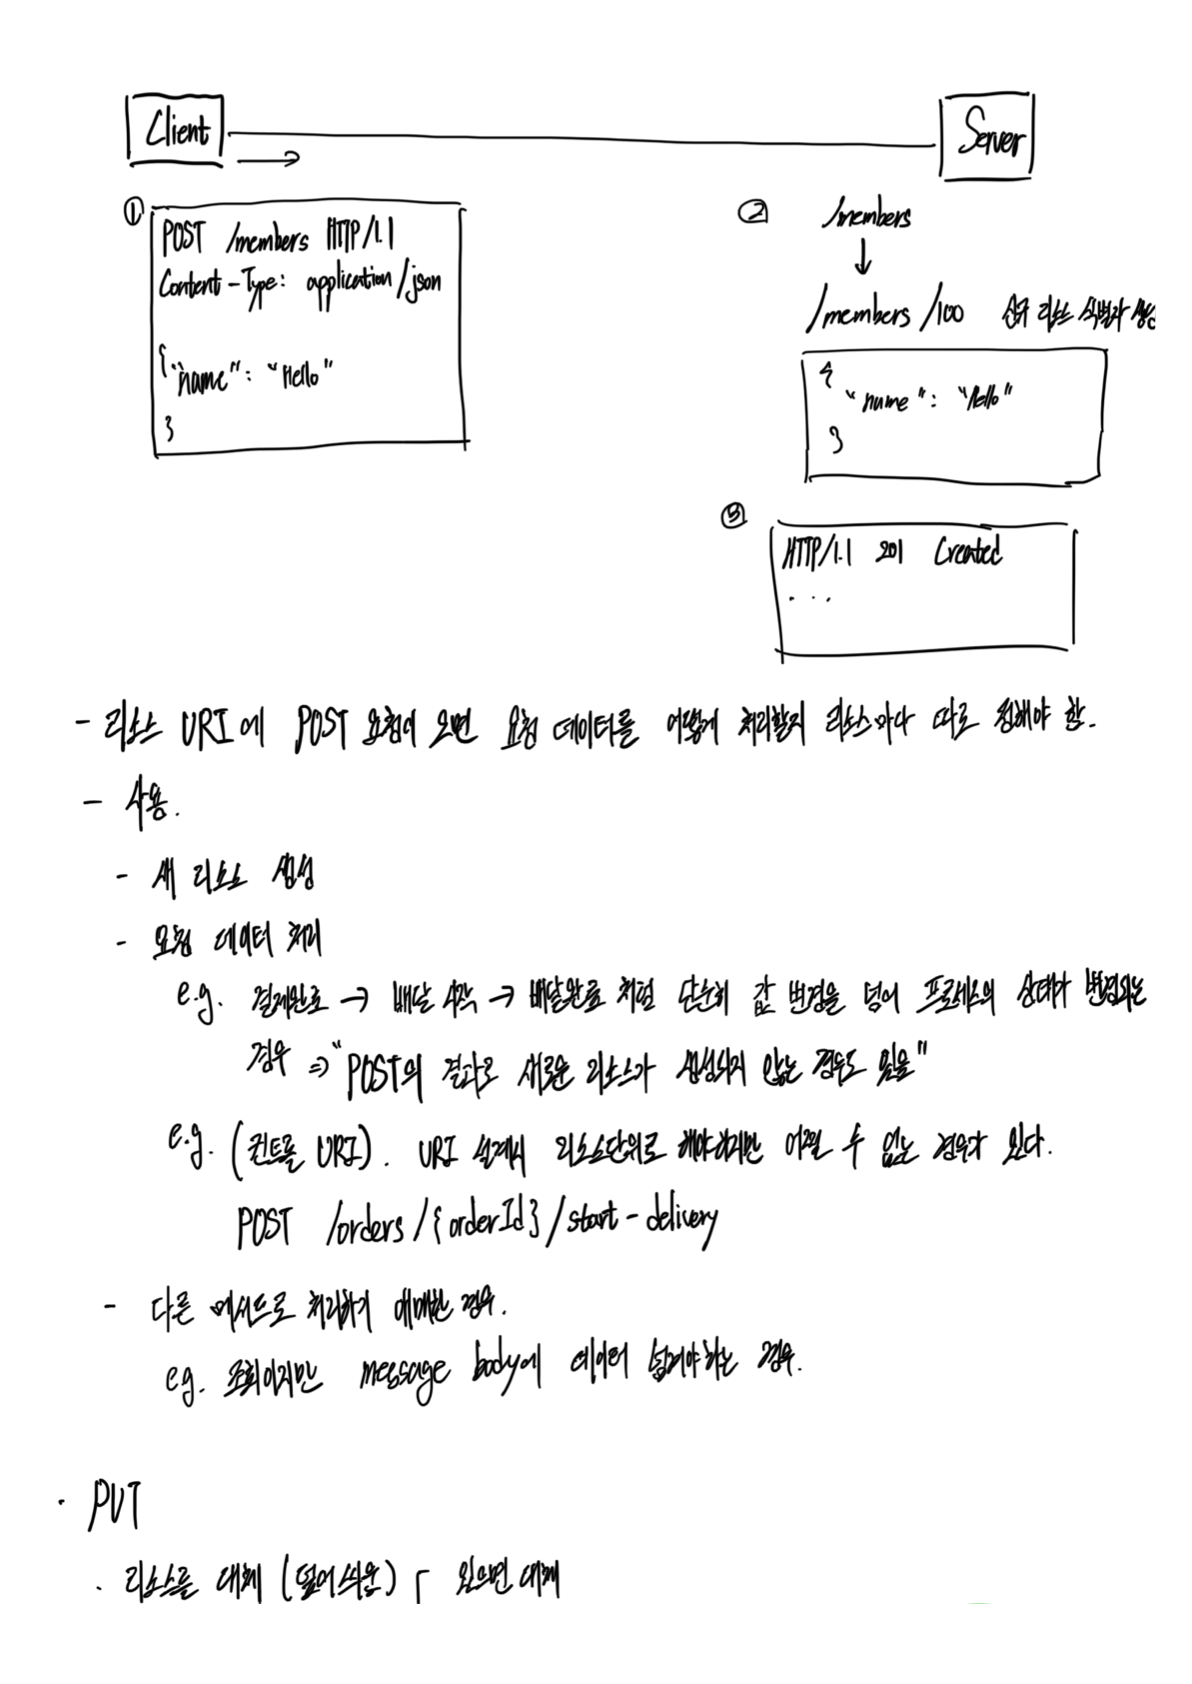 Client
Server
①
POST /members HTTP/1.1
Content-Type: application/json
{
"name": "Hello"
}
②
/members
↓
/members/100 신규 리소스 식별자 생성
{
"name": "Hello"
}
③
HTTP/1.1 201 Created
...
- 리소스 URI에 POST 요청이 오면 요청 데이터를 어떻게 처리할지 리소스마다 따로 정해야 함.
- 사용.
- 새 리소스 생성
- 요청 데이터 처리
e.g. 결제완료 → 배달 시작 → 배달완료 처럼 단순히 값 변경을 넘어 프로세스의 상태가 변경되는
경우 ⇒ "POST의 결과로 새로운 리소스가 생성되지 않는 경우도 있음"
e.g. (컨트롤 URI). URI 설계시 리소스단위로 해야하지만 어쩔 수 없는 경우가 있다.
POST /orders/{orderId}/start-delivery
- 다른 메서드로 처리하기 애매한 경우.
e.g. 조회이지만 message body에 데이터 넘겨야하는 경우.
· PUT
· 리소스를 대체 (덮어씌움) ┌ 있으면 대체